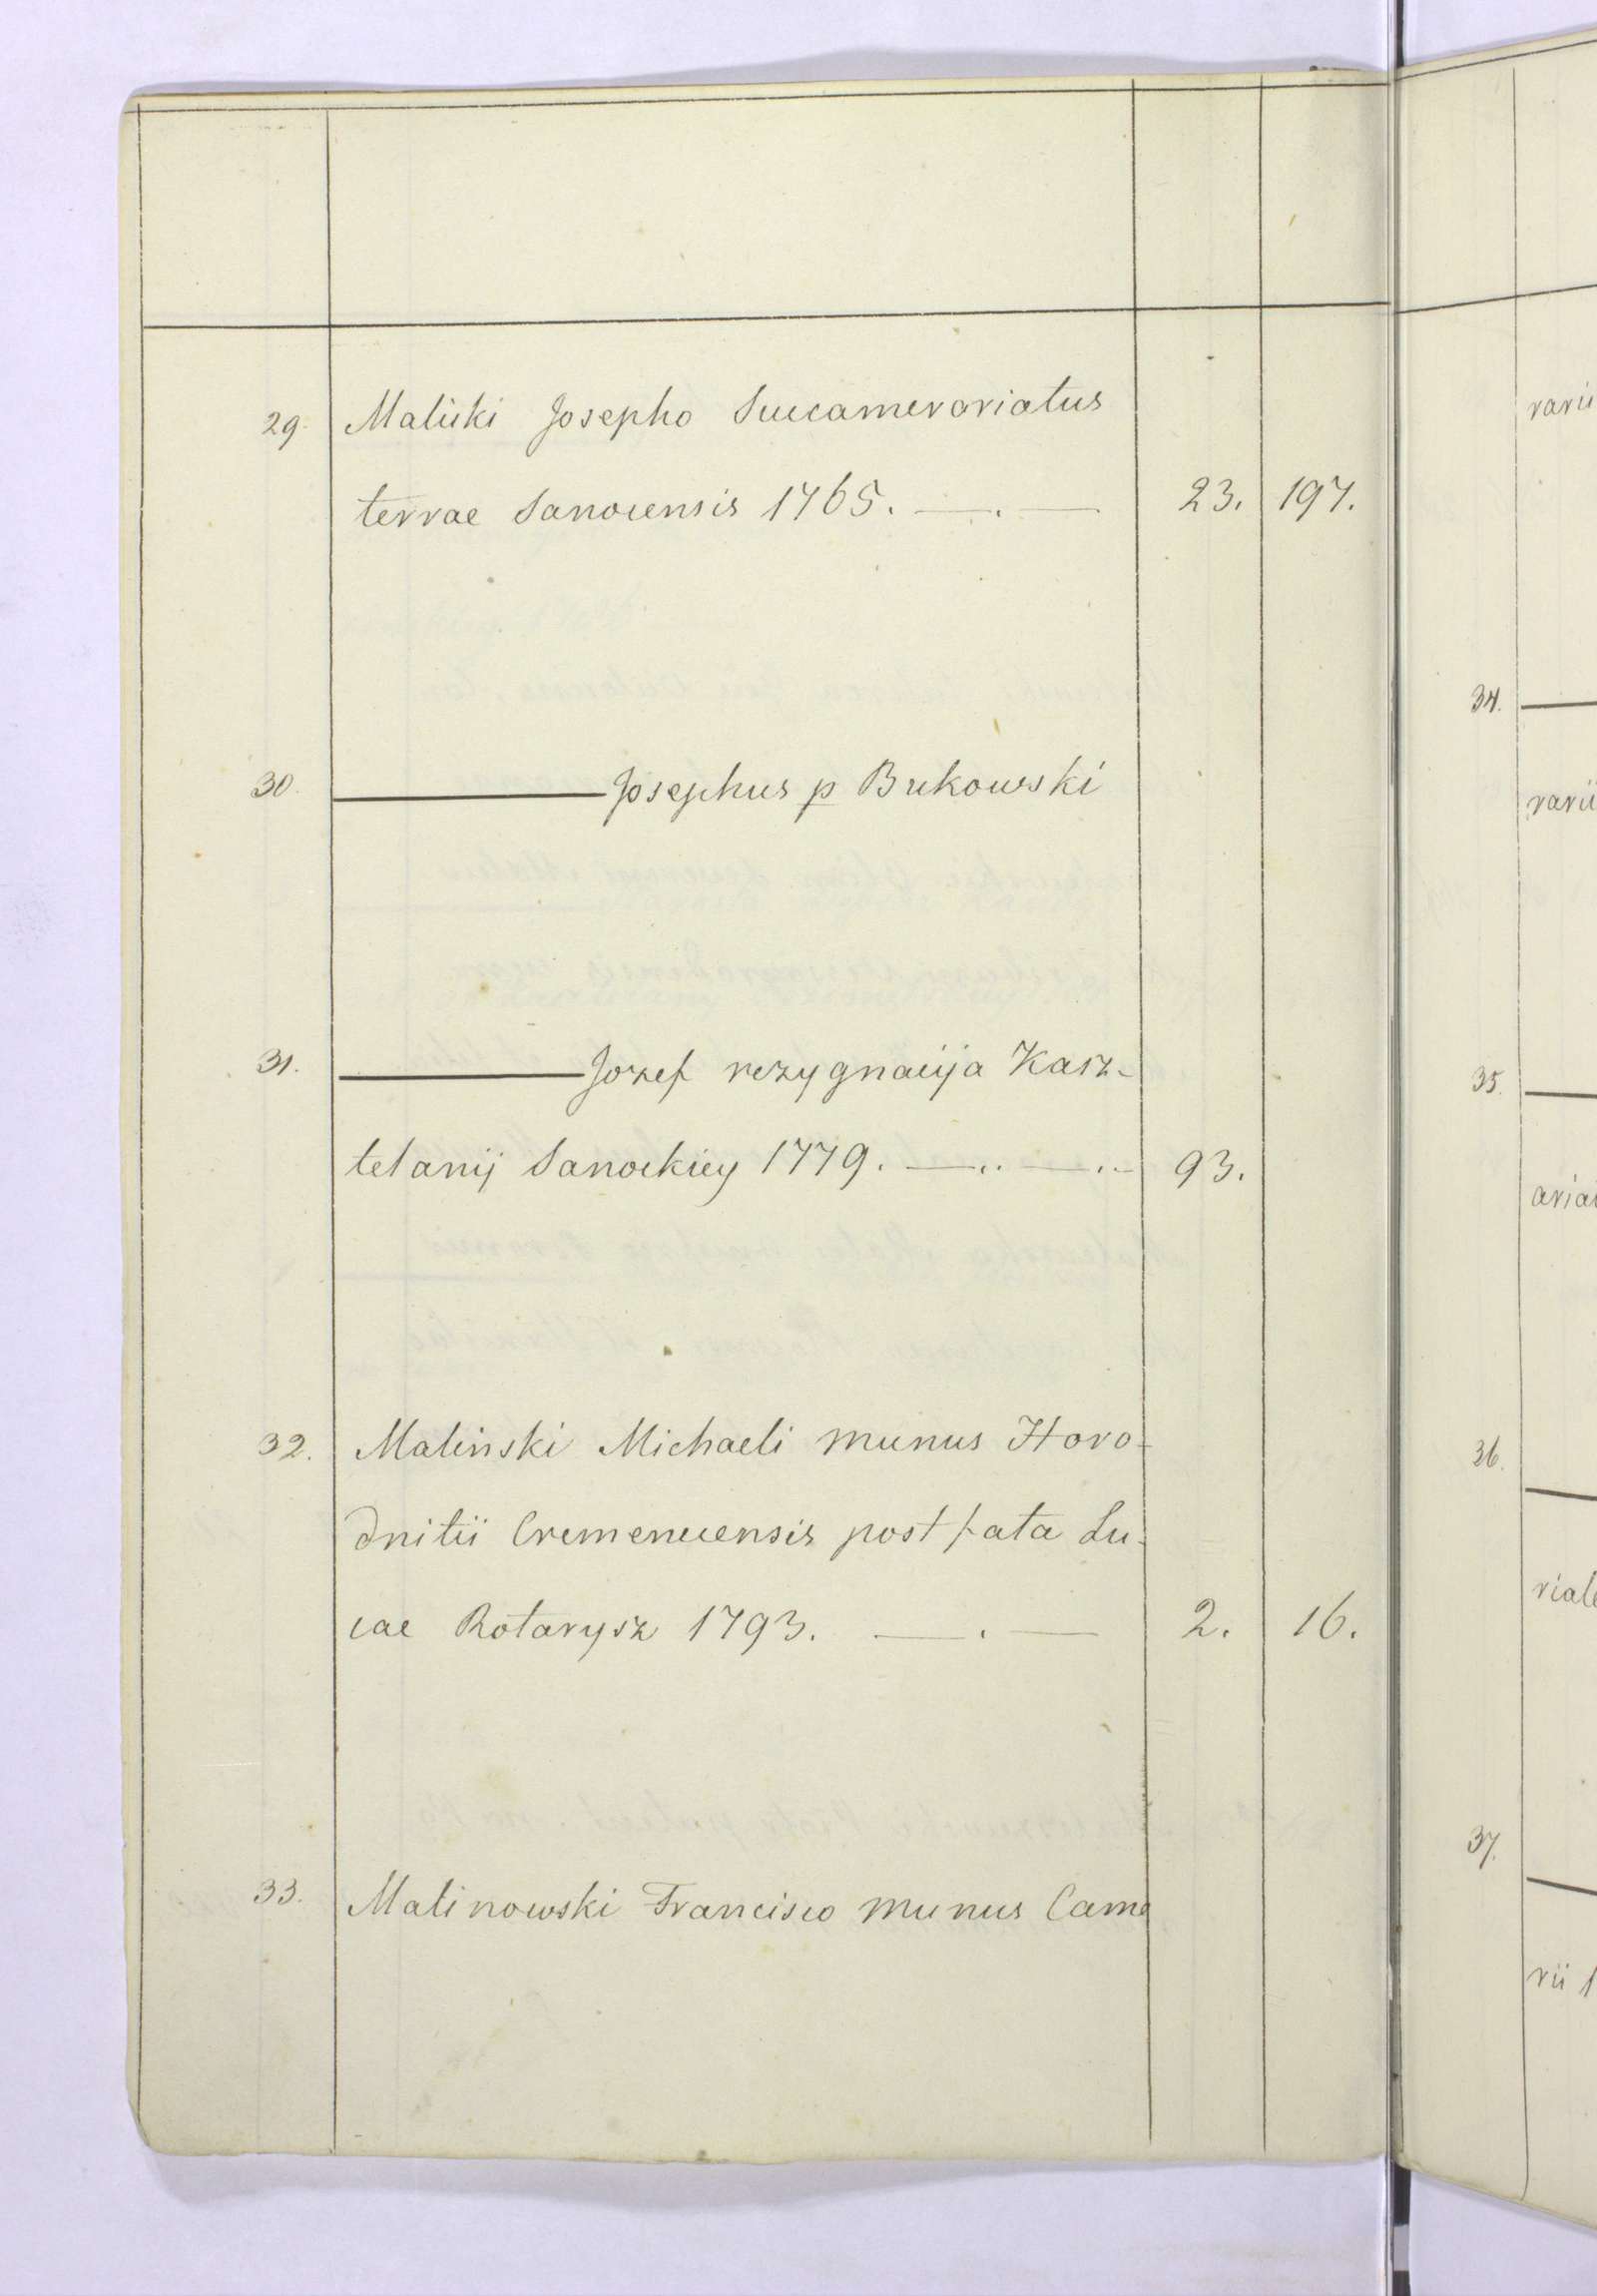 29. Malicki Josepho Succamerariatus
terrae Sanocensis 1765. —.— 23. 197.
30. ——— Josephus p Bukowski
31. ——— Jozef rezygnacija Kasz-
telanij Sanockiey 1779. —..—.- 93.
32. Malinski Michaeli munus Horo-
dnitii Cremenecensis post fata Lu-
cae Rotarysz 1793. —.— 2. 16.
33. Malinowski Francisco munus Came
rarii
34. —
rarii
35. —
36. —
37. —